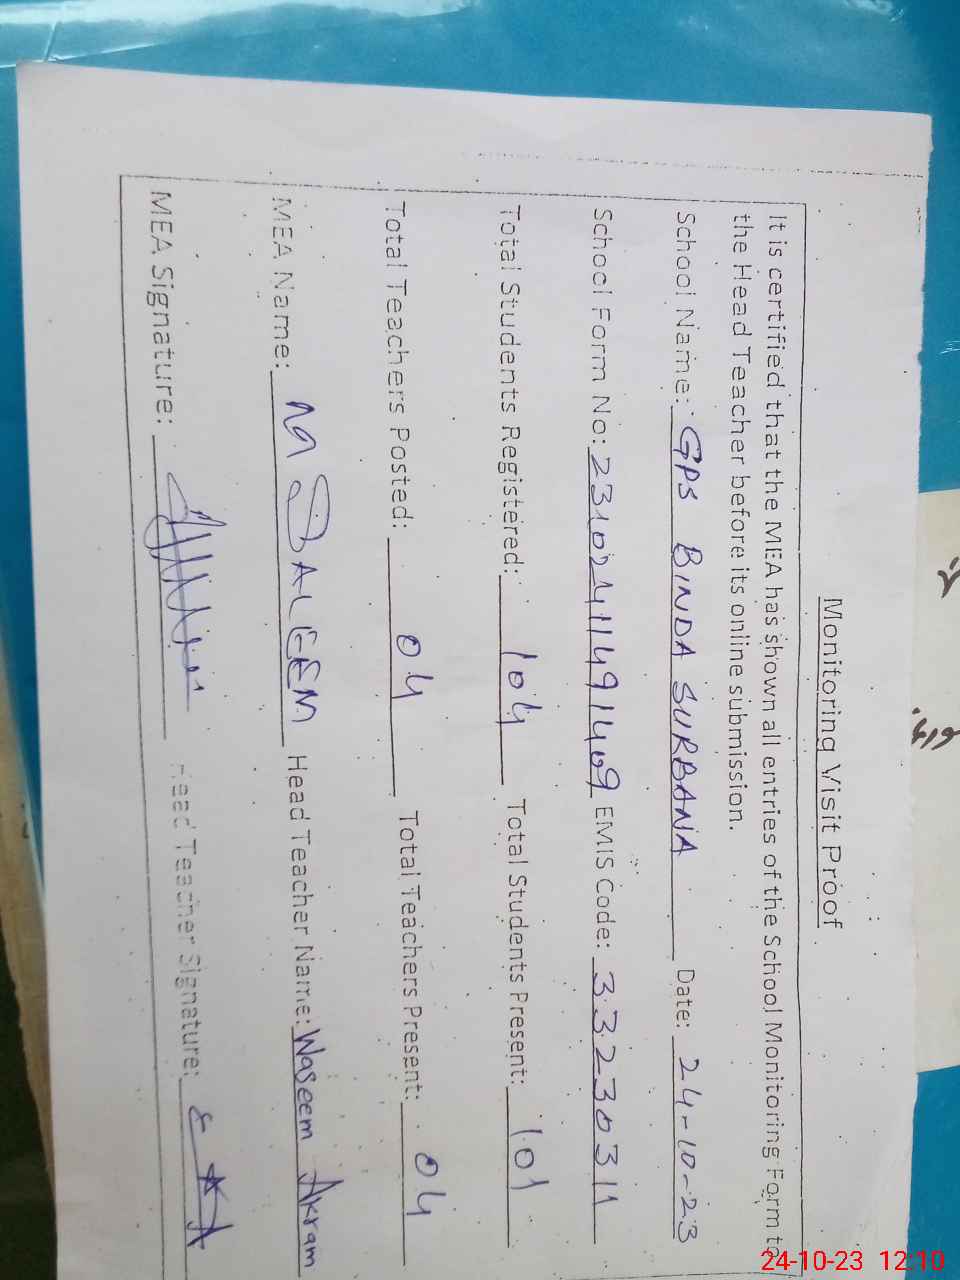 Monitoring Visit Proof
It is certified that the MEA has shown all entries of the School Monitoring Form to
the Head Teacher before its online submission.
School Name: GPS BINDA SURBANA Date: 24-10-23
School Form No: EMIS Code: 33230311
Total Students Registered: 104 Total Students Present: 101
Total Teachers Posted: 04 Total Teachers Present: 04
MEA Name: SALEEM Head Teacher Name: Waseem Akram
MEA Signature: Head Teacher Signature:
24-10-23 12:10